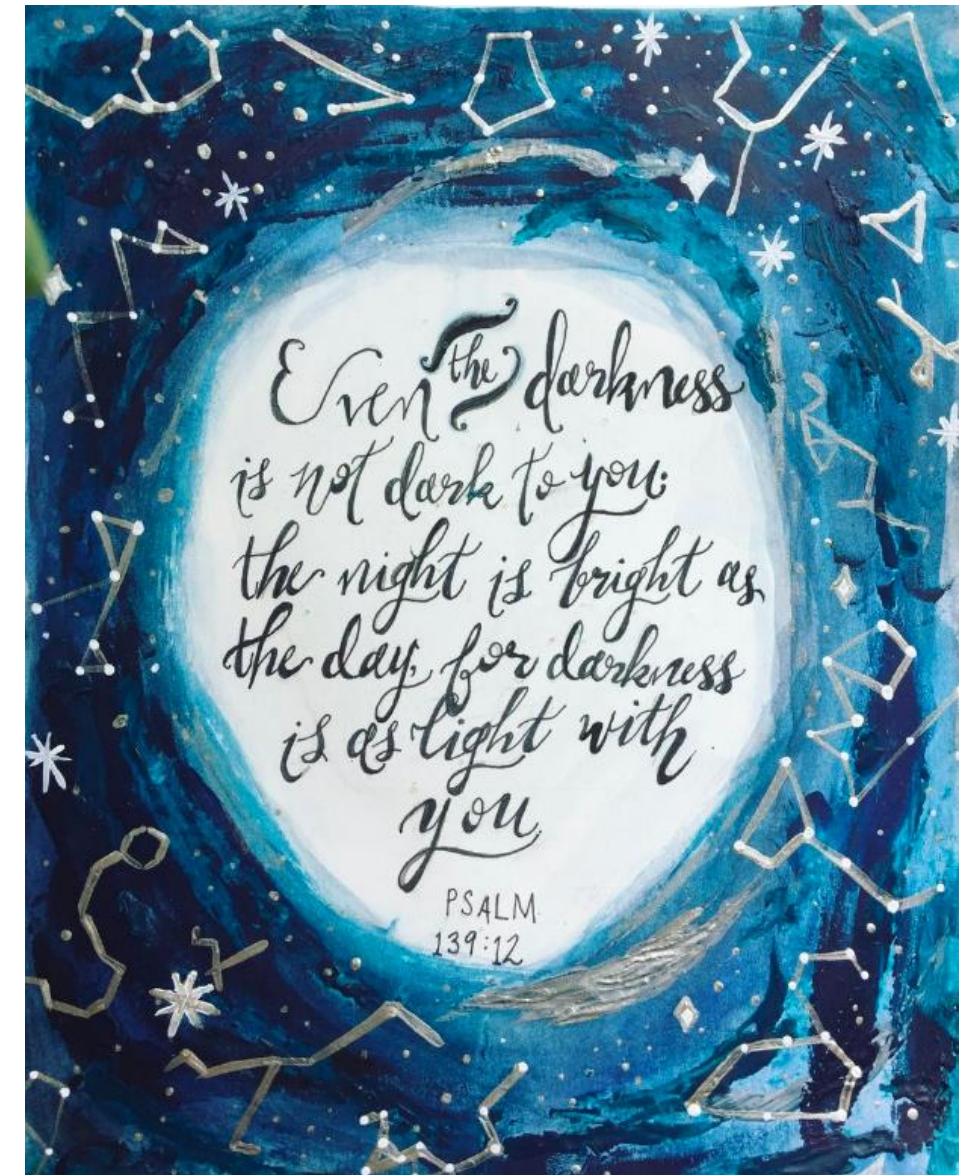 Even the darkness
is not dark to you;
the night is bright as
the day, for darkness
is as light with
you.
PSALM
139:12